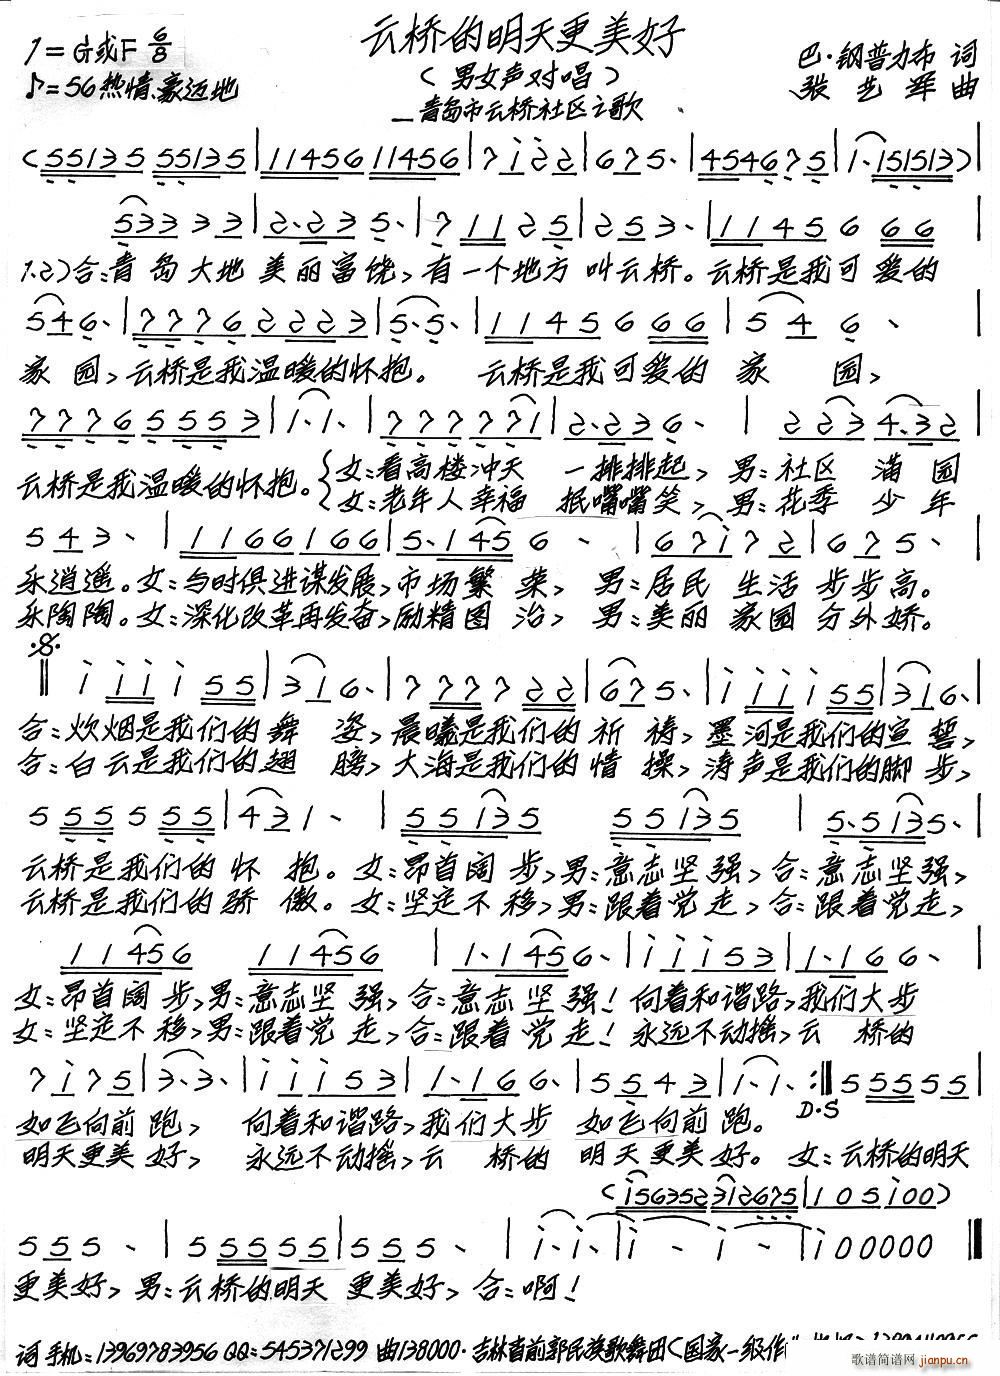 云桥的明天更美好
1=G或F 6/8
(男女声对唱)
巴·钢普力布 词
♪=56 热情、豪迈地
张艺军 曲
—青岛市云桥社区之歌
(55135 55135|11456 11456|7i22|675·|454675|1·151513)|
53333|2·235·|71125|253·|1145666|
1.2)合:青岛大地美丽富饶,有一个地方叫云桥。云桥是我可爱的
546·|77762223|5·5·|1145666|546·|
家园,云桥是我温暖的怀抱。云桥是我可爱的家园,
77765553|1·1·|7777771|2·236·|2234·32|
云桥是我温暖的怀抱。{女:看高楼冲天 一排排起,男:社区 满园
女:老年人幸福 抿嘴嘴笑,男:花季 少年
543·|1166166|5·1456·|67i72|675·|
乐逍遥。女:与时俱进谋发展,市场繁荣,男:居民生活步步高。
乐陶陶。女:深化改革再发奋,励精图治,男:美丽家园分外娇。
‖iiii55|3i6·|777722|675·|iiii55|3i6·|
合:炊烟是我们的舞姿,晨曦是我们的祈祷,墨河是我们的宣誓,
合:白云是我们的翅膀,大海是我们的情操,涛声是我们的脚步,
5555555|431·|55135 55135|5·5135·|
云桥是我们的怀抱。女:昂首阔步,男:意志坚强,合:意志坚强,
云桥是我们的骄傲。女:坚定不移,男:跟着党走,合:跟着党走,
11456 11456|1·1456·|iii53|1·166·|
女:昂首阔步,男:意志坚强,合:意志坚强!向着和谐路,我们大步
女:坚定不移,男:跟着党走,合:跟着党走!永远不动摇,云桥的
7i75|3·3·|iii53|1·166·|5543|1·1·:‖555555|
D.S
如飞向前跑,向着和谐路,我们大步如飞向前跑。
明天更美好,永远不动摇,云桥的明天更美好。女:云桥的明天
(i563523i2675|105i00)
555·|555555|555·|i·i·|i-i-|i00000‖
更美好,男:云桥的明天更美好,合:啊!
词 手机:13969783956 QQ:545371299 曲138000·吉林省前郭民族歌舞团(国家一级作
歌谱简谱网
jianpu.cn